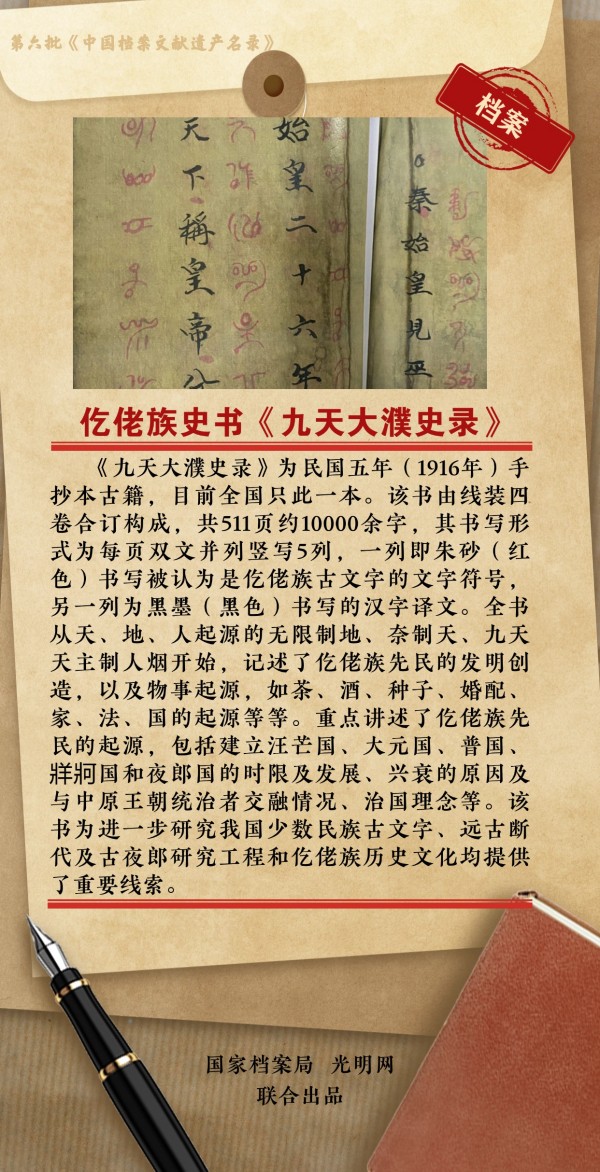 第六批《中国档案文献遗产名录》
档案
始皇二十六年
天下稱皇帝分
秦始皇見巫
仡佬族史书《九天大濮史录》
《九天大濮史录》为民国五年（1916年）手
抄本古籍，目前全国只此一本。该书由线装四
卷合订构成，共511页约10000余字，其书写形
式为每页双文并列竖写5列，一列即朱砂（红
色）书写被认为是仡佬族古文字的文字符号，
另一列为黑墨（黑色）书写的汉字译文。全书
从天、地、人起源的无限制地、奈制天、九天
天主制人烟开始，记述了仡佬族先民的发明创
造，以及物事起源，如茶、酒、种子、婚配、
家、法、国的起源等等。重点讲述了仡佬族先
民的起源，包括建立汪芒国、大元国、普国、
牂牁国和夜郎国的时限及发展、兴衰的原因及
与中原王朝统治者交融情况、治国理念等。该
书为进一步研究我国少数民族古文字、远古断
代及古夜郎研究工程和仡佬族历史文化均提供
了重要线索。
国家档案局 光明网
联合出品